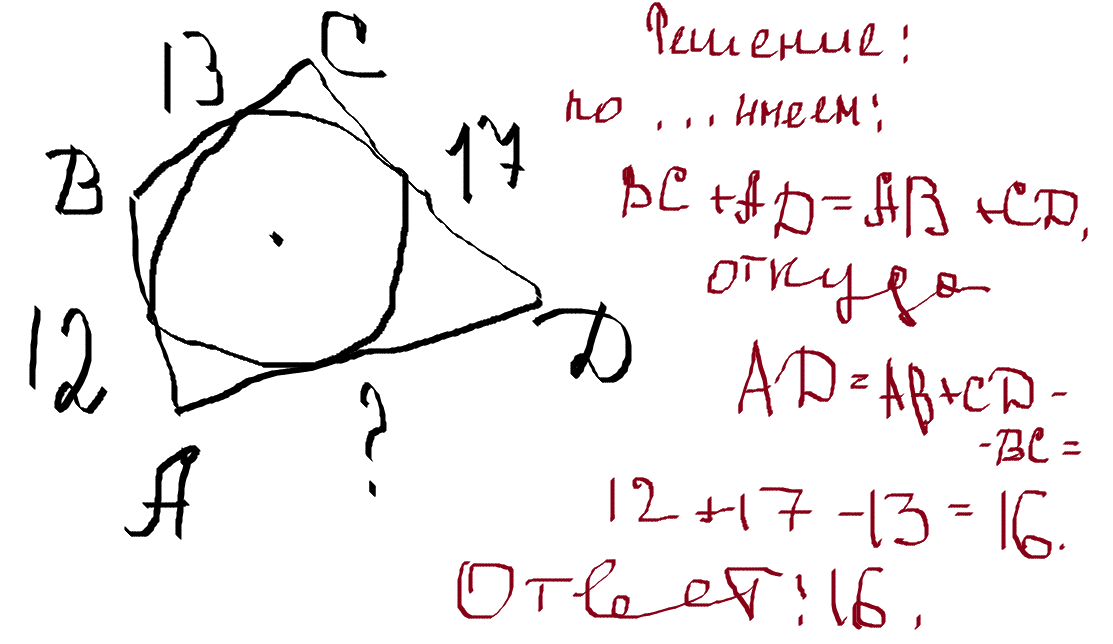 C
13
17
B
12
D
A
?
Решение:
по ... имеем:
BC + AD = AB + CD,
откуда
AD = AB + CD -
- BC =
12 + 17 - 13 = 16.
Ответ: 16.